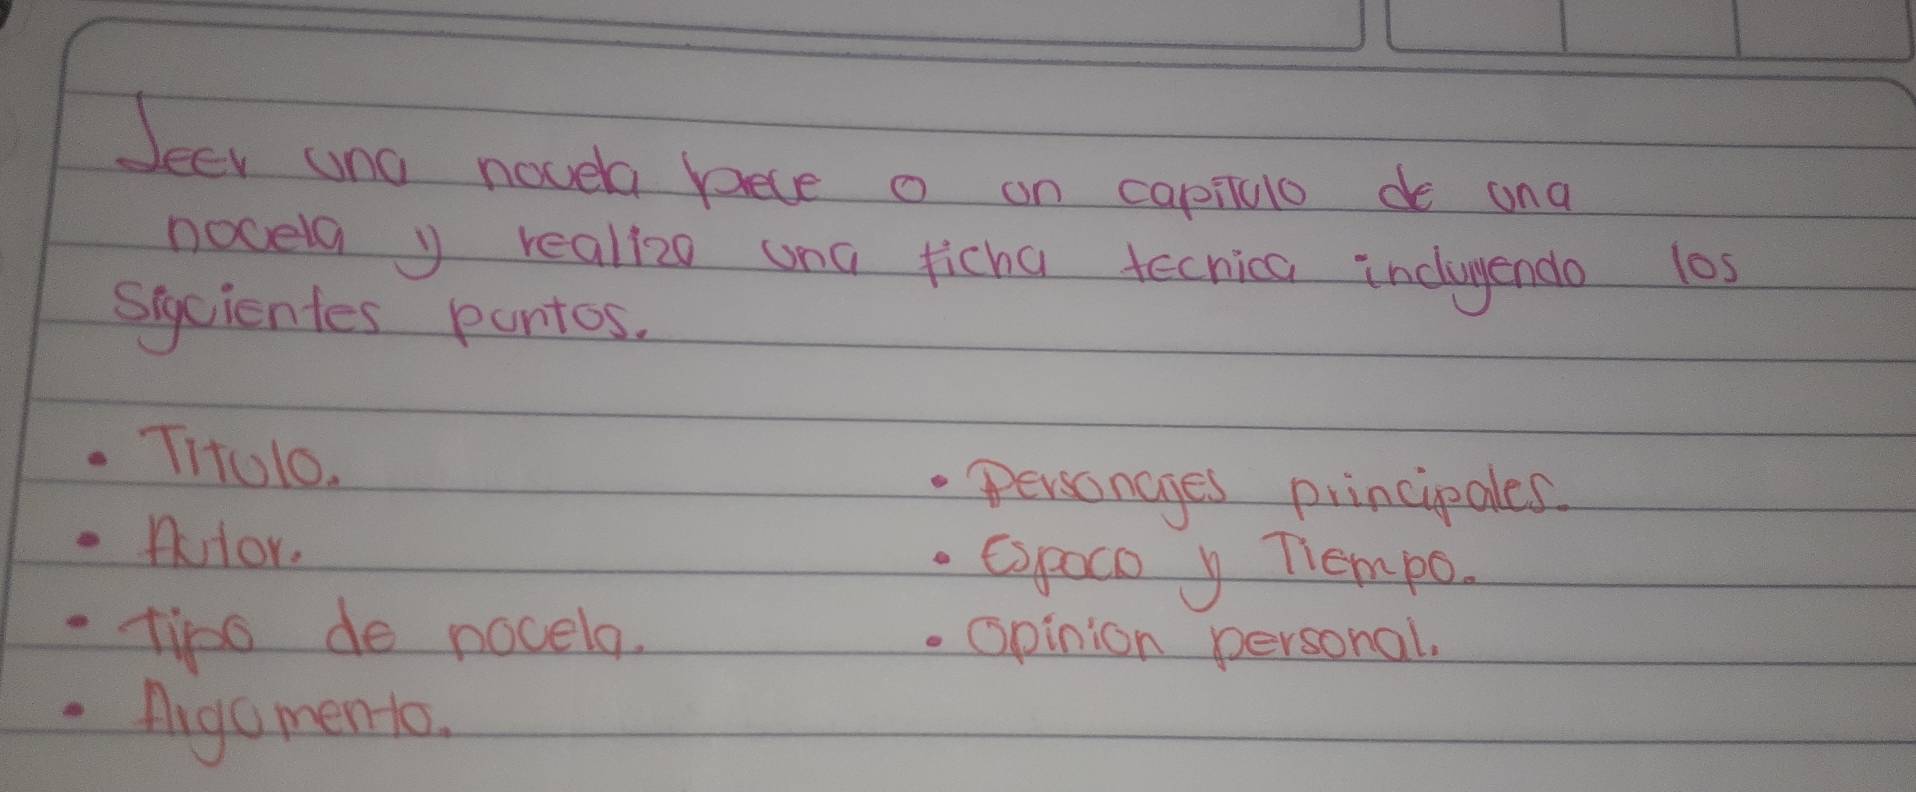 Leer una novela breve o un capitulo de una
novela y realiza una ficha tecnica incluyendo los
siguientes puntos.
• Titulo.
• Autor.
• tipo de novela.
• Argumento.
• Personages principales.
• Espaco y Tiempo.
• Opinion personal.